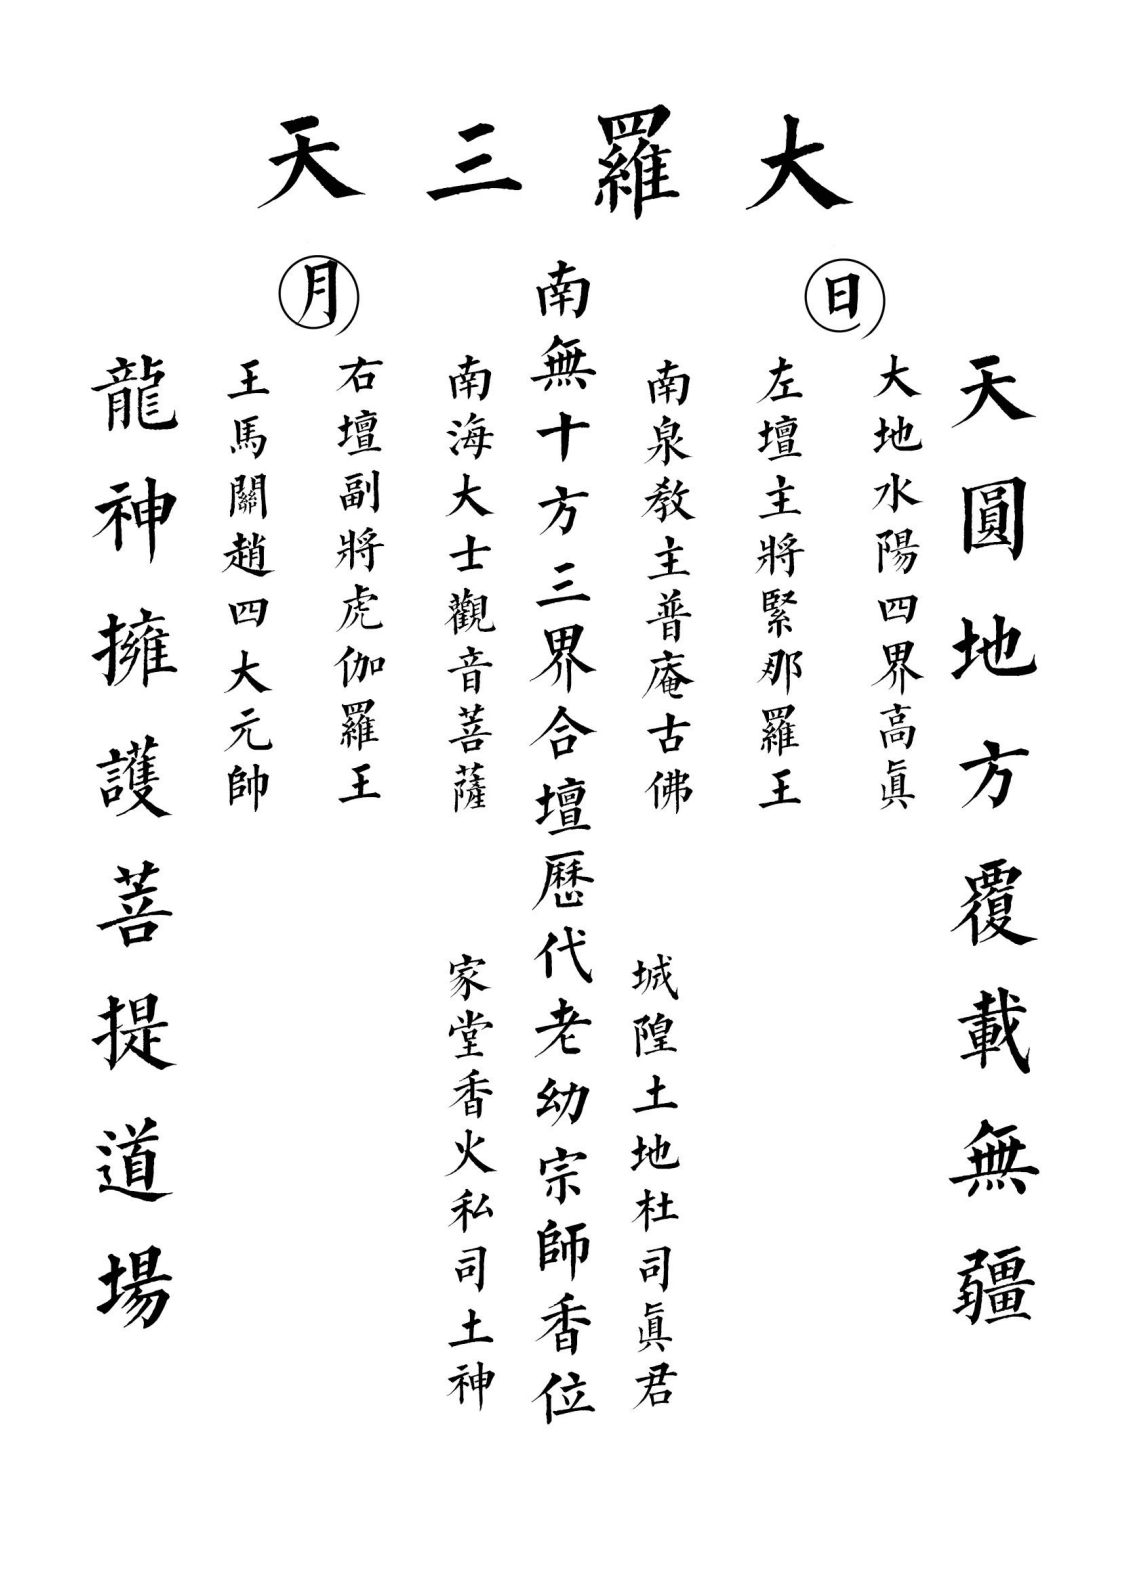 大羅三天
日
月
天圓地方覆載無疆
大地水陽四界高眞
左壇主將緊那羅王
南泉教主普庵古佛
城隍土地杜司眞君
南無十方三界合壇歷代老幼宗師香位
南海大士觀音菩薩
家堂香火私司土神
右壇副將虎伽羅王
王馬關趙四大元帥
龍神擁護菩提道場